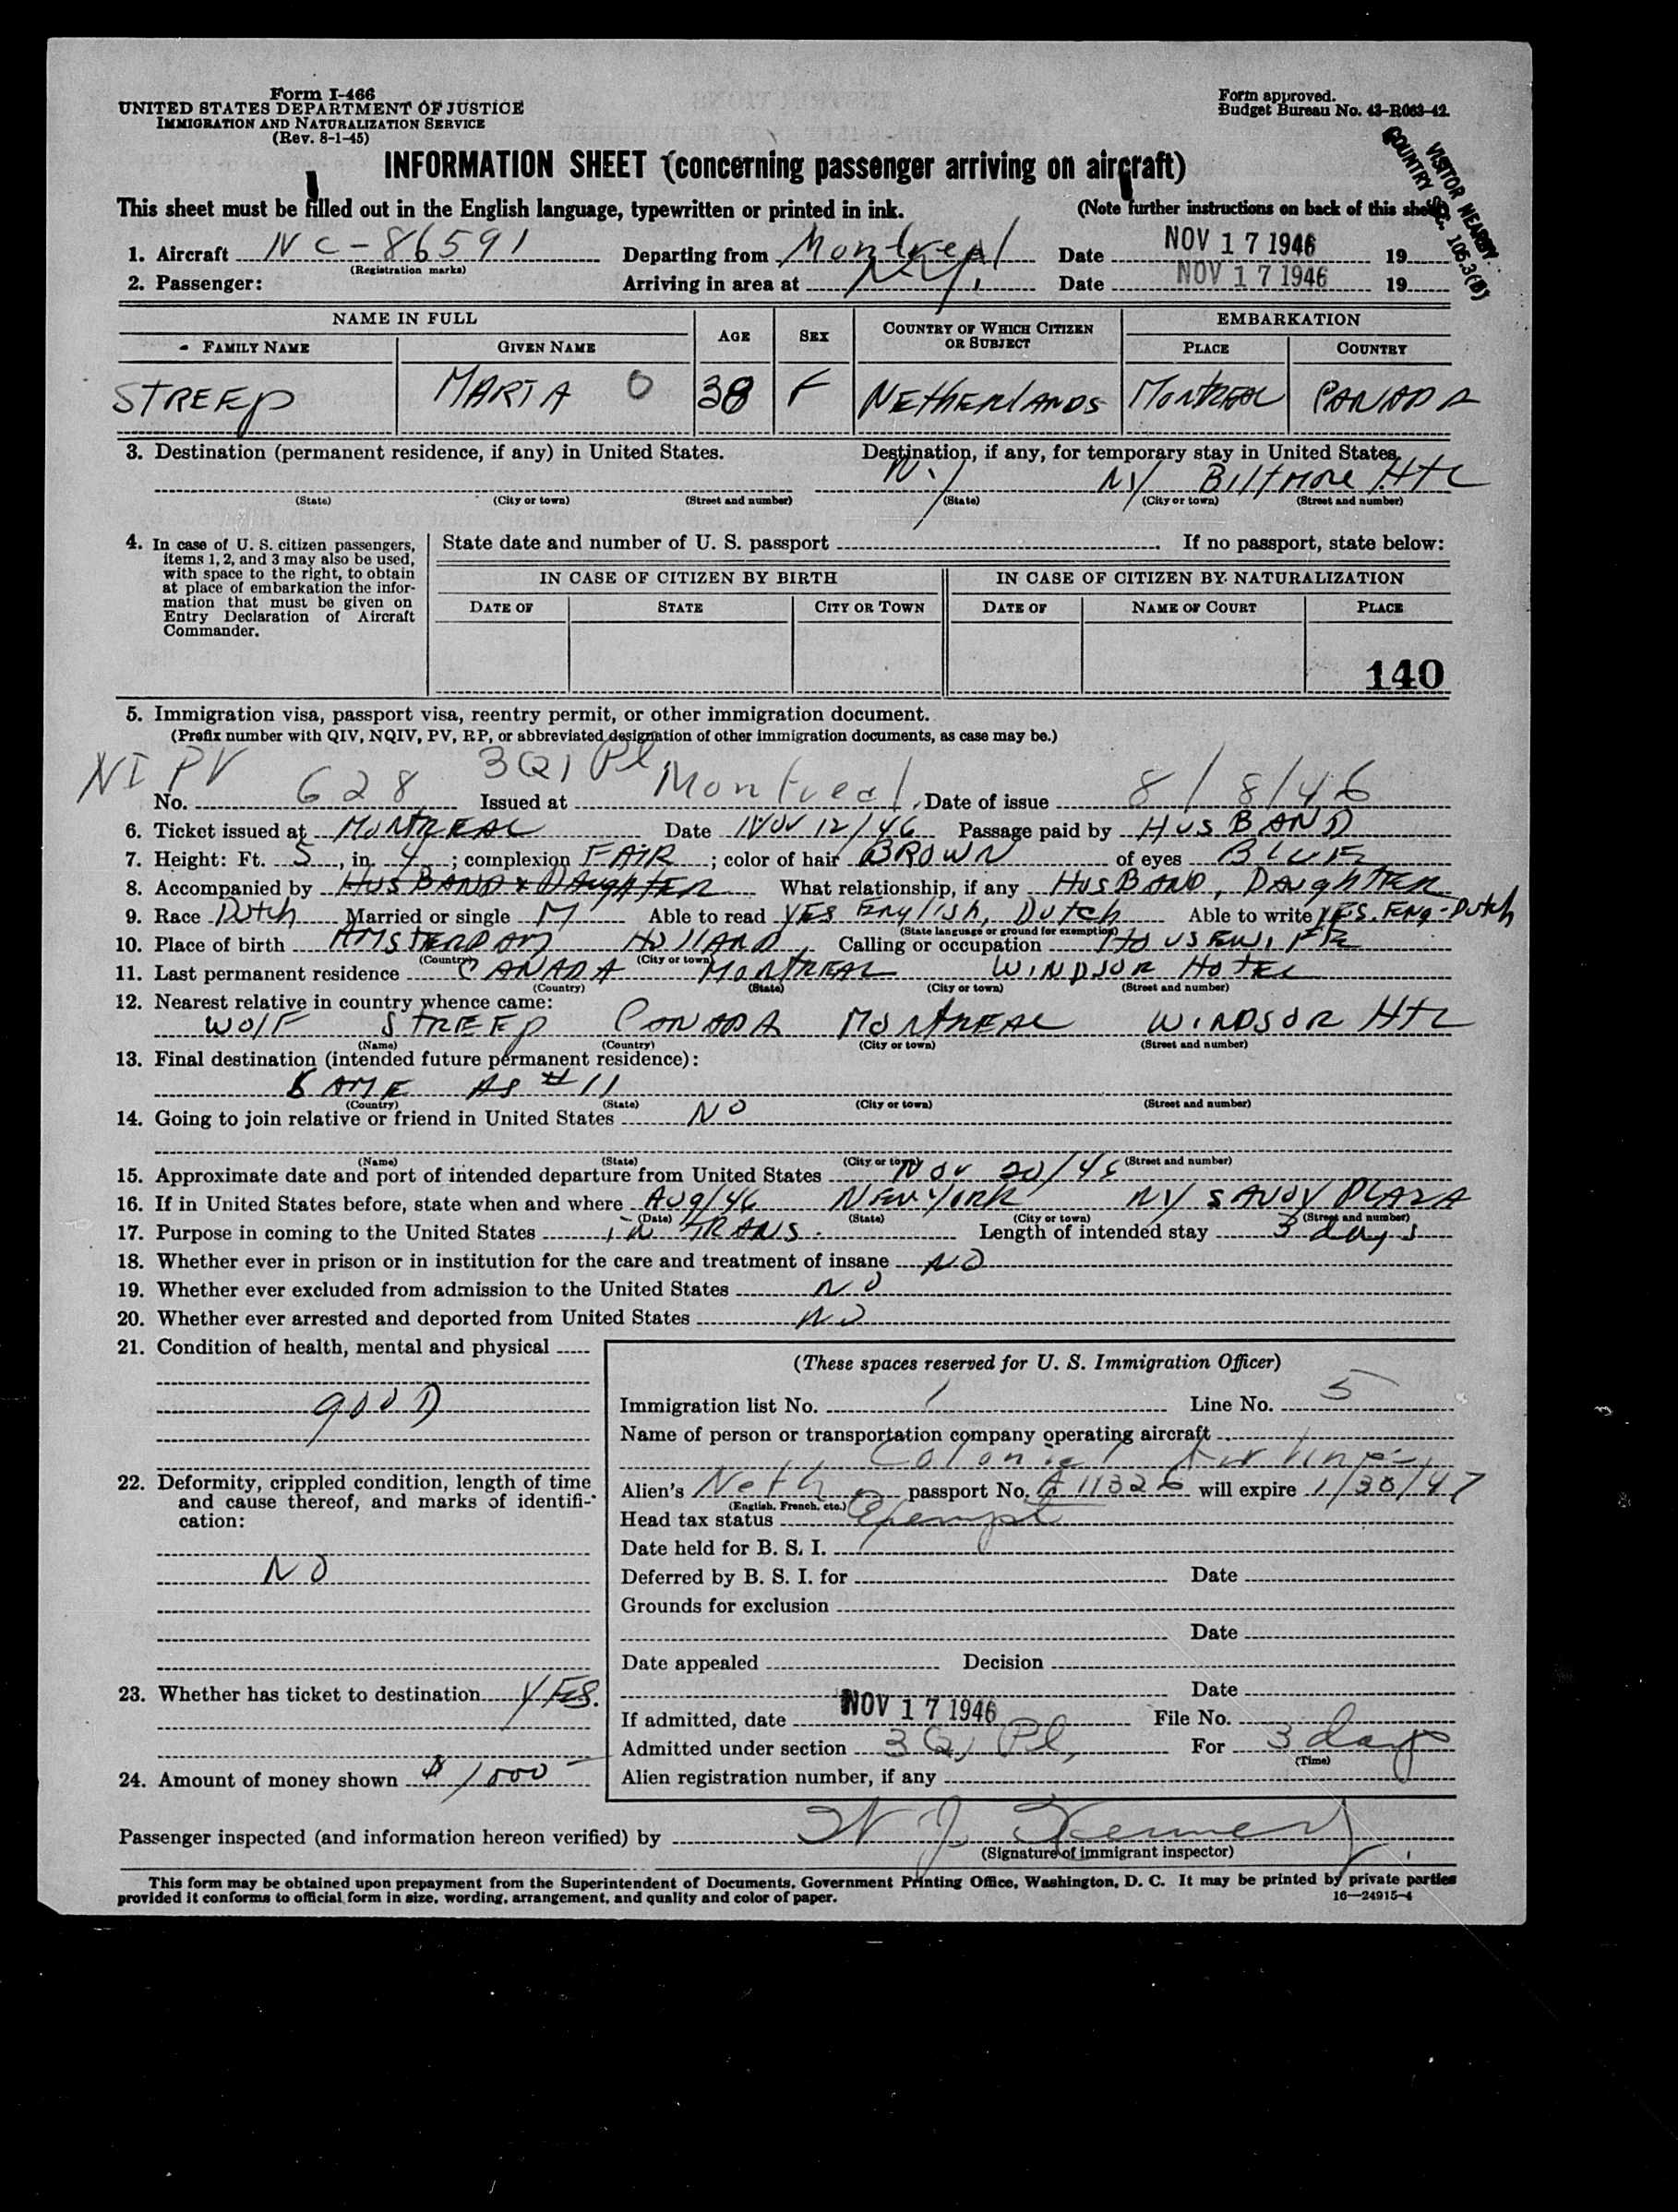 Form I-466
UNITED STATES DEPARTMENT OF JUSTICE
IMMIGRATION AND NATURALIZATION SERVICE
(Rev. 8-1-45)
Form approved.
Budget Bureau No. 43-R063-42.
VISITOR NEARBY
COUNTRY SC. 105.3(B)
INFORMATION SHEET (concerning passenger arriving on aircraft)
This sheet must be filled out in the English language, typewritten or printed in ink. (Note further instructions on back of this sheet)
1. Aircraft NC-86591 Departing from Montreal Date NOV 17 1946 19
(Registration marks)
2. Passenger: Arriving in area at N.Y. Date NOV 17 1946 19
NAME IN FULL AGE SEX COUNTRY OF WHICH CITIZEN OR SUBJECT EMBARKATION
FAMILY NAME GIVEN NAME PLACE COUNTRY
STREEP MARIA O 38 F NETHERLANDS MONTREAL CANADA
3. Destination (permanent residence, if any) in United States. Destination, if any, for temporary stay in United States.
N.Y NY BILTMORE HTL
(State) (City or town) (Street and number) (State) (City or town) (Street and number)
4. In case of U. S. citizen passengers, items 1, 2, and 3 may also be used, with space to the right, to obtain at place of embarkation the information that must be given on Entry Declaration of Aircraft Commander.
State date and number of U. S. passport . If no passport, state below:
IN CASE OF CITIZEN BY BIRTH IN CASE OF CITIZEN BY NATURALIZATION
DATE OF STATE CITY OR TOWN DATE OF NAME OF COURT PLACE
140
5. Immigration visa, passport visa, reentry permit, or other immigration document.
(Prefix number with QIV, NQIV, PV, RP, or abbreviated designation of other immigration documents, as case may be.)
NI PV 3(2) Pl
No. 628 Issued at Montreal, Date of issue 8/8/46
6. Ticket issued at MONTREAL Date NOV 12/46 Passage paid by HUSBAND
7. Height: Ft. 5, in. 4; complexion FAIR; color of hair BROWN of eyes BLUE
8. Accompanied by HUSBAND & DAUGHTER What relationship, if any HUSBAND, DAUGHTER
9. Race Dutch Married or single M Able to read YES English, Dutch Able to write YES. Eng-Dutch
(State language or ground for exemption)
10. Place of birth AMSTERDAM HOLLAND, Calling or occupation HOUSEWIFE
(Country) (City or town)
11. Last permanent residence CANADA MONTREAL WINDSOR HOTEL
(Country) (State) (City or town) (Street and number)
12. Nearest relative in country whence came:
WOLF STREEP CANADA MONTREAL WINDSOR HTL
(Name) (Country) (City or town) (Street and number)
13. Final destination (intended future permanent residence):
SAME AS #11
(Country) (State) (City or town) (Street and number)
14. Going to join relative or friend in United States NO
(Name) (State) (City or town) (Street and number)
15. Approximate date and port of intended departure from United States Nov 20/46
16. If in United States before, state when and where AUG/46 NEW YORK NY SAVOY PLAZA
(Date) (State) (City or town) (Street and number)
17. Purpose in coming to the United States IN TRANS. Length of intended stay 3 days
18. Whether ever in prison or in institution for the care and treatment of insane NO
19. Whether ever excluded from admission to the United States NO
20. Whether ever arrested and deported from United States NO
21. Condition of health, mental and physical
gooD
22. Deformity, crippled condition, length of time and cause thereof, and marks of identification:
NO
23. Whether has ticket to destination YES.
24. Amount of money shown $1000-
(These spaces reserved for U. S. Immigration Officer)
Immigration list No. 1 Line No. 5
Name of person or transportation company operating aircraft
Colonial Air Lines
Alien's Neth. passport No. A 11326 will expire 1/30/47
(English, French, etc.)
Head tax status Exempt
Date held for B. S. I.
Deferred by B. S. I. for Date
Grounds for exclusion
Date
Date appealed Decision
Date
If admitted, date NOV 17 1946 File No.
Admitted under section 3(2) Pl, For 3 days
(Time)
Alien registration number, if any
Passenger inspected (and information hereon verified) by
(Signature of immigrant inspector)
This form may be obtained upon prepayment from the Superintendent of Documents, Government Printing Office, Washington, D. C. It may be printed by private parties
provided it conforms to official form in size, wording, arrangement, and quality and color of paper. 16—24915-4